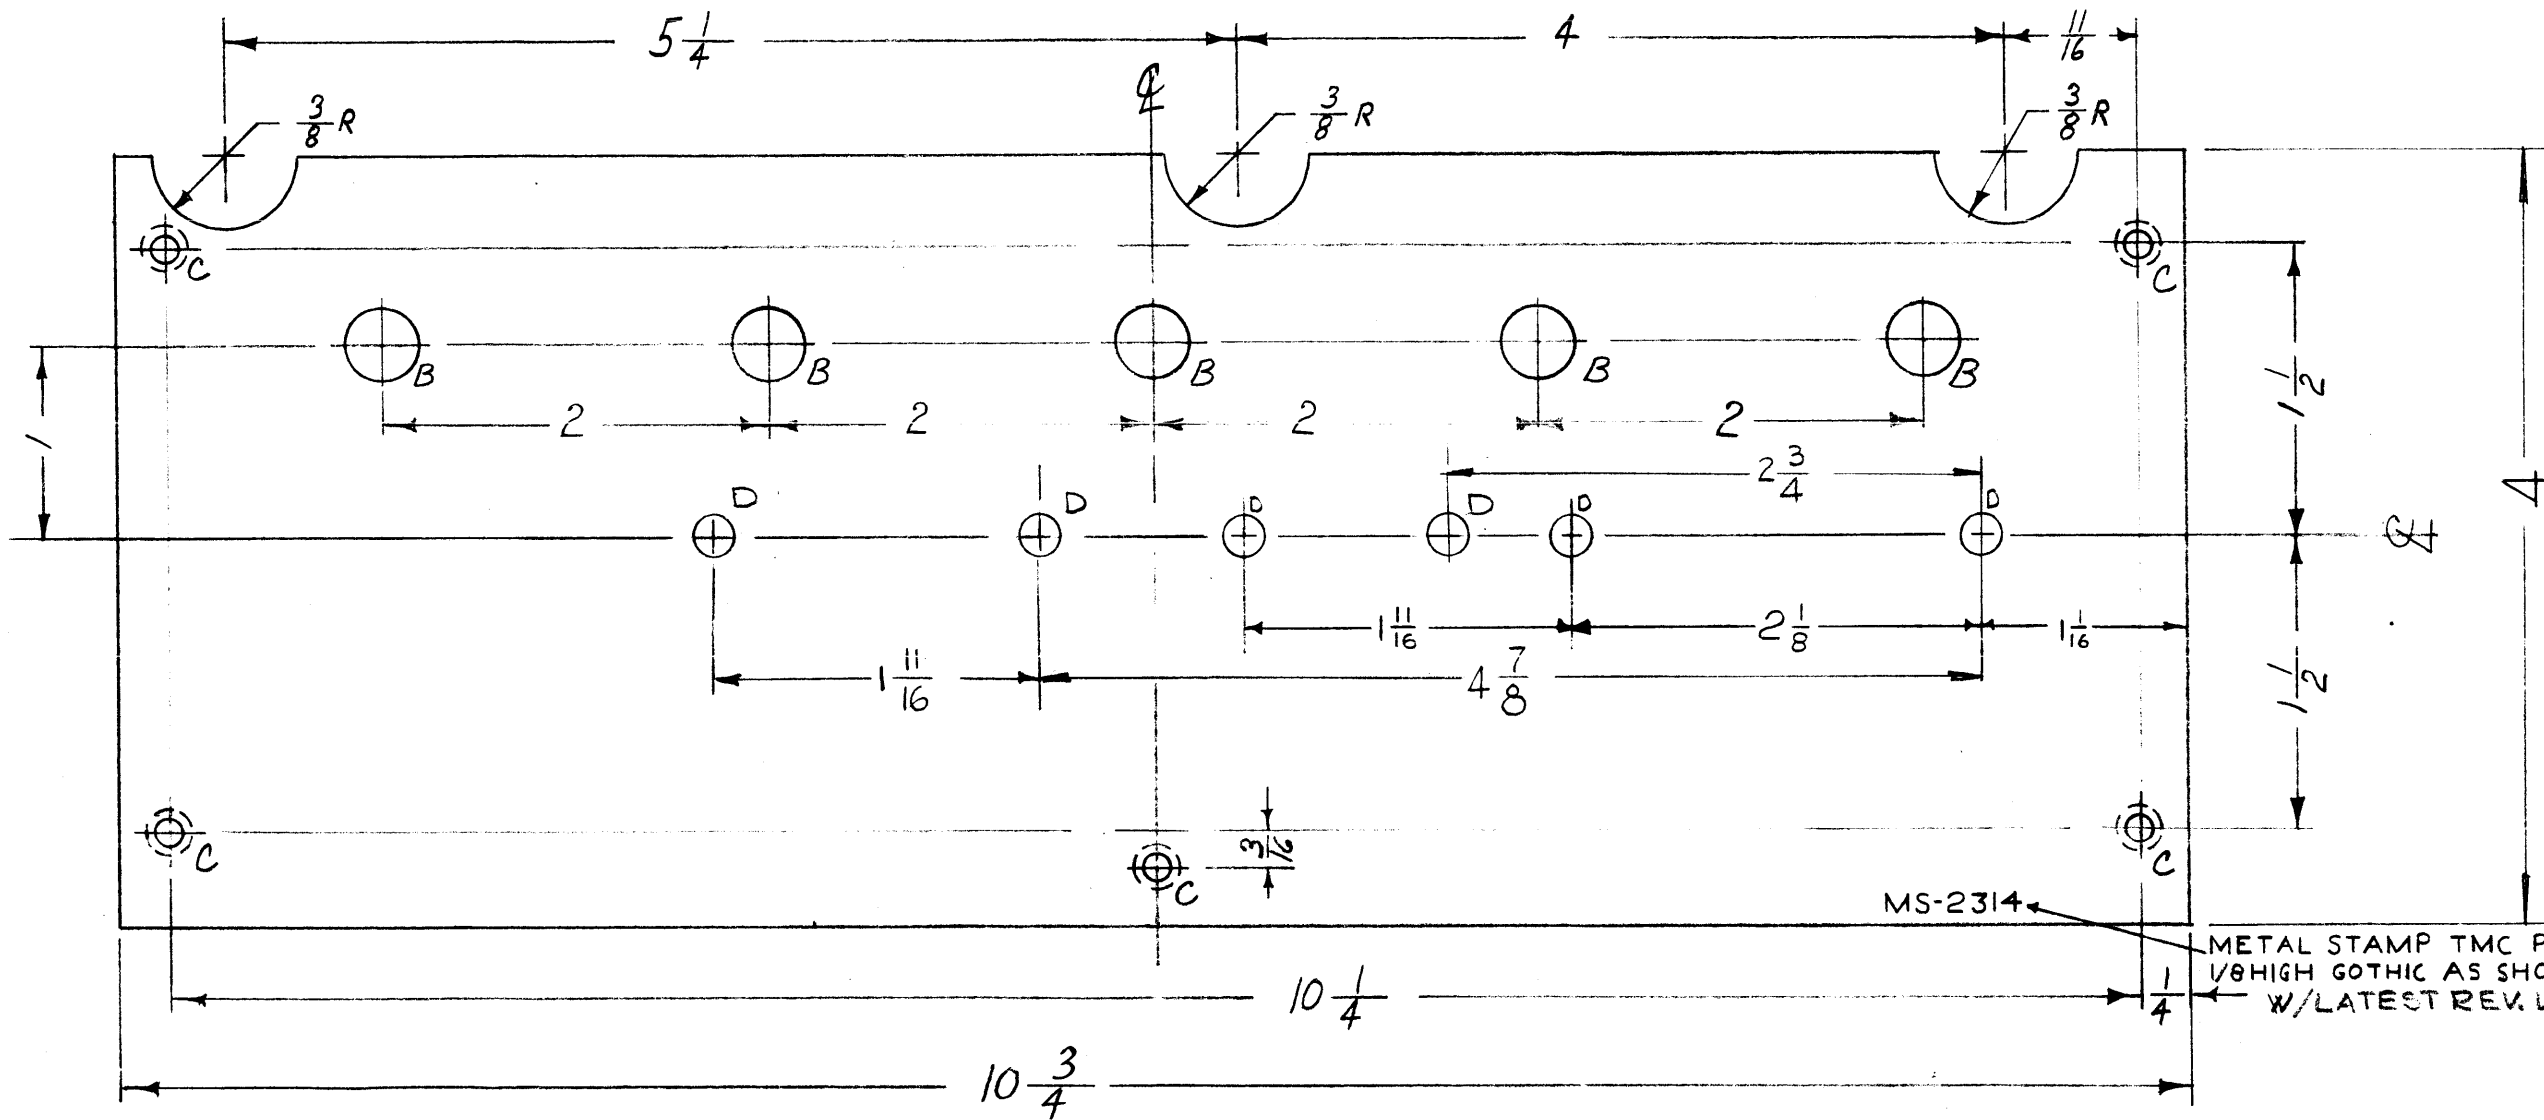 5 1/4
4
11/16
℄
3/8 R
3/8 R
3/8 R
C
C
B
B
B
B
B
1
2
2
2
2
1 1/2
4
2 3/4
D
D
D
D
D
D
℄
1 11/16
2 1/8
1 1/16
1 11/16
4 7/8
1 1/2
3/16
C
C
C
MS-2314
METAL STAMP TMC P
1/8 HIGH GOTHIC AS SHO
W/LATEST REV. L
10 1/4
1/4
10 3/4